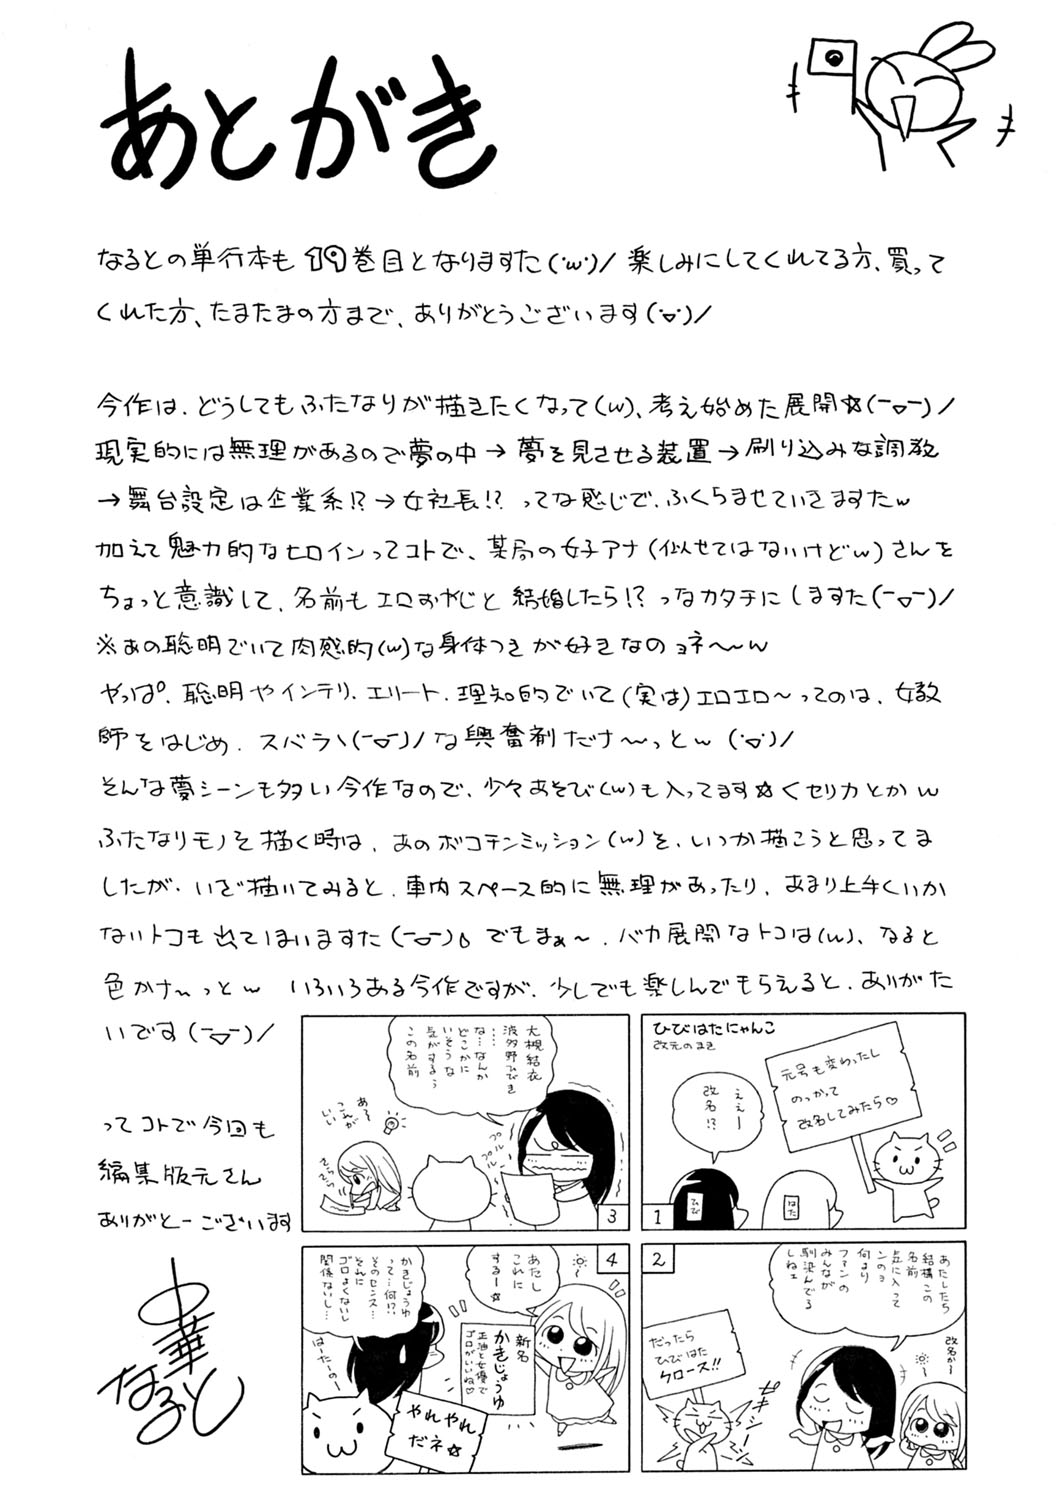 あとがき
なるとの単行本も19巻目となりますた(･w･)/ 楽しみにしてくれてる方、買って
くれた方、たまたまの方まで、ありがとうございます(･▽･)/
今作は、どうしてもふたなりが描きたくなって(w)、考え始めた展開☆(ー▽ー)/
現実的には無理があるので夢の中→夢を見させる装置→刷り込みな調教
→舞台設定は企業系!?→女社長!? ってな感じで、ふくらませていきますたw
加えて魅力的なヒロインってコトで、某局の女子アナ(似せてはないけどw)さんを
ちょっと意識して、名前もエロおやじと結婚したら!? っなカタチにしますた(ー▽ー)/
※あの聡明でいて肉感的(w)な身体つきが好きなのョネ〜〜w
やっぱ、聡明やインテリ、エリート、理知的でいて(実は)エロエロ〜ってのは、女教
師をはじめ、スバラヽ(ー▽ー)/な興奮剤だナ〜っとw (･▽･)/
そんな夢シーンも多い今作なので、少々あそび(w)も入ってます☆くセリカとかw
ふたなりモノを描く時は、あのボコチンミッション(w)を、いつか描こうと思ってま
したが、いざ描いてみると、車内スペース的に無理があったり、あまり上手くいか
ないトコも出てしまいますた(ー▽ー)。でもまぁ〜、バカ展開なトコは(w)、なると
色かナ〜っとw いろいろある今作ですが、少しでも楽しんでもらえると、ありがた
いです(ー▽ー)/
ってコトで今回も
編集版元さん
ありがとーございます
中華
なると
ひびはたにゃんこ
改元のまき
元号も変わったし
のっかって
改名してみたら♡
ええー
改名!?
ひび
はた
1
あたしたち
結構この
名前
気に入って
ンのョ
何より
ファンの
みんなが
馴染んでる
しねェ
改名かー
だったら
ひびはた
クロース!!
2
大槻結衣
波多野ひびき
……
な…なんか
どこかに
いそうな
気がするぅ
この名前
プル
プル
プル
ある
こんが
いい
3
あたし
これに
するー☆
新名
かきじょうゆ
正油と女優で
ゴロがいいね♡
かきじょうゆ
って…何!?
そのセンス…
それに
ゴロよくないし
関係ないし…
はーたーのー
やれやれ
だネ☆
4